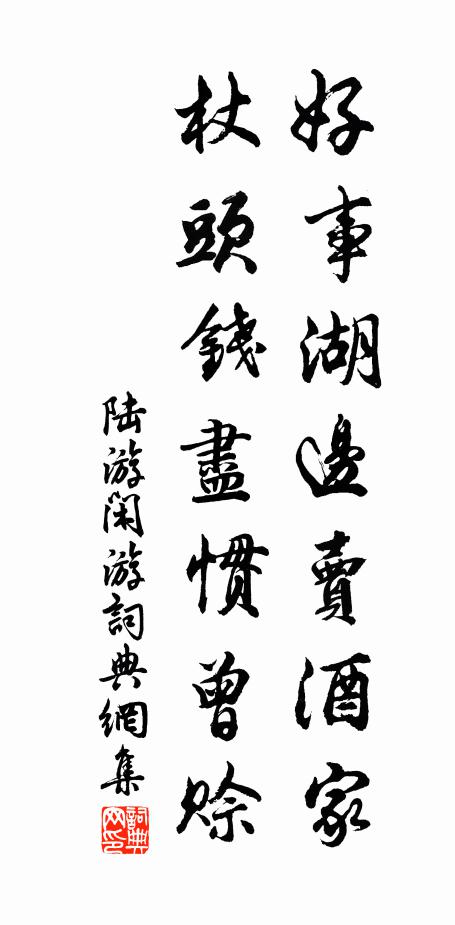 好事湖邊賣酒家
杖頭錢盡慣曾賒
陆游闲游詞典網集
詞典网印